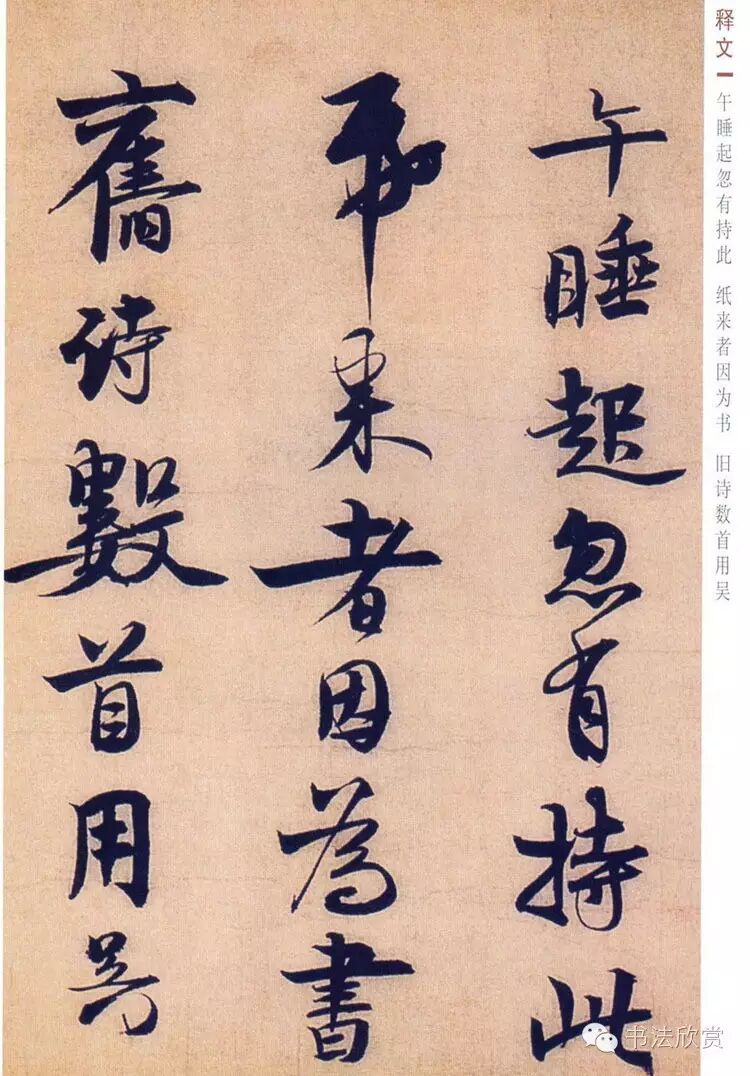 午睡起忽有持此
帋来者因為書
舊詩數首用吴
释文
午睡起忽有持此 纸来者因为书 旧诗数首用吴
书法欣赏